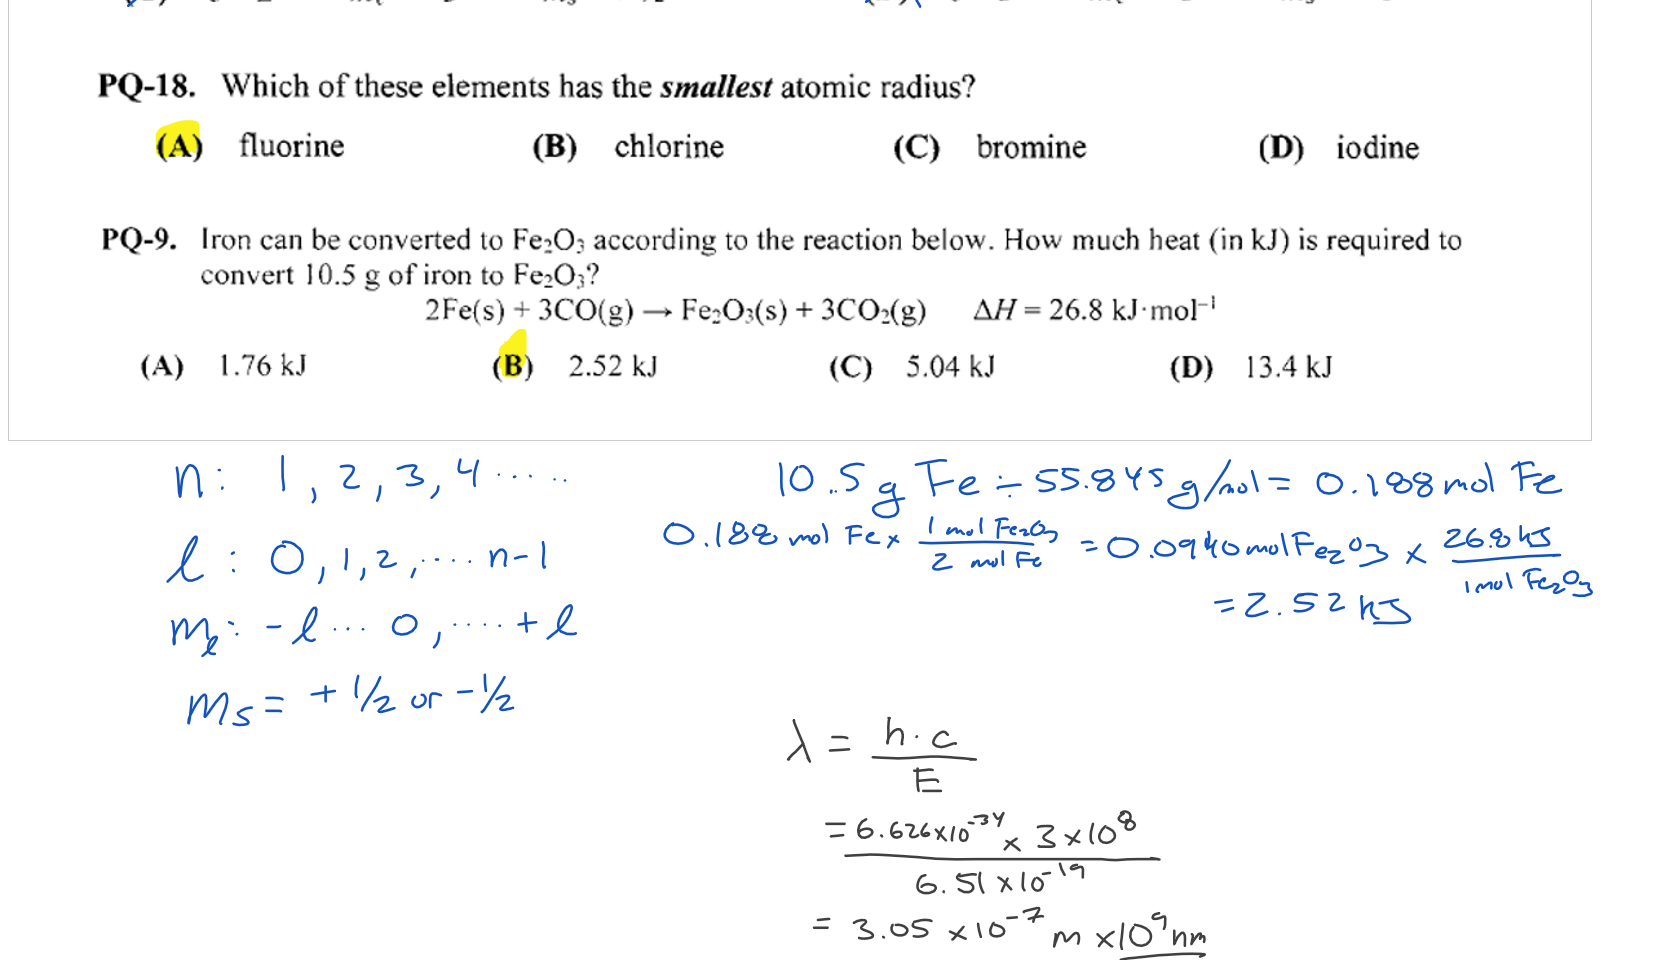 PQ-18. Which of these elements has the smallest atomic radius?
(A) fluorine (B) chlorine (C) bromine (D) iodine
PQ-9. Iron can be converted to Fe₂O₃ according to the reaction below. How much heat (in kJ) is required to
convert 10.5 g of iron to Fe₂O₃?
2Fe(s) + 3CO(g) → Fe₂O₃(s) + 3CO₂(g) ΔH = 26.8 kJ·mol⁻¹
(A) 1.76 kJ (B) 2.52 kJ (C) 5.04 kJ (D) 13.4 kJ
n: 1, 2, 3, 4 .....
l : 0, 1, 2, .... n-1
mₗ: -l ... 0, .... +l
ms = + 1/2 or - 1/2
10.5 g Fe ÷ 55.845 g/mol = 0.188 mol Fe
0.188 mol Fe x 1 mol Fe₂O₃ / 2 mol Fe = 0.0940 mol Fe₂O₃ x 26.8 kJ / 1 mol Fe₂O₃
= 2.52 kJ
λ = h·c / E
= 6.626 x 10⁻³⁴ x 3 x 10⁸ / 6.51 x 10⁻¹⁹
= 3.05 x 10⁻⁷ m x 10⁹ nm